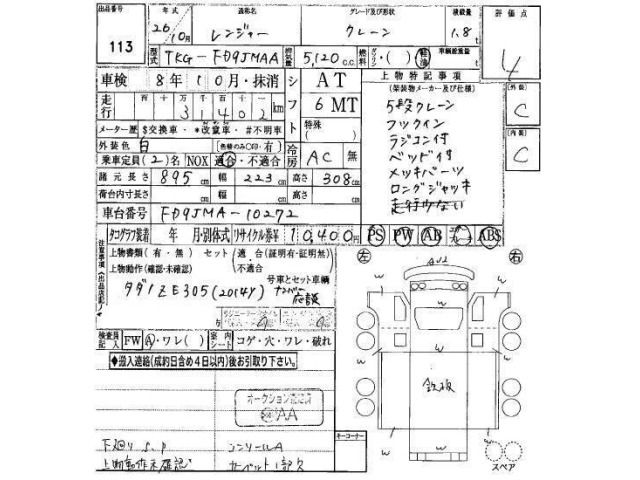 出品番号
113
年式
26年10月
通称名
レンジャー
グレード及び形状
クレーン
積載量
1.8t
評価点
4
型式
TKG-FD9JMAA
排気量
5,120 c.c.
燃料
ガソリン・( )軽油
車輌総重量
t
車検
8年10月・抹消
シフト
AT
6 MT
特殊
( )
走行
百 十 万 千 百 十 一
31402
km
メーター歴 $交換車・*改竄車・#不明車
外装色
白
(色替のみ○印・有)
冷房
AC 無
乗車定員 (2)名
NOX 適合・不適合
諸元長さ
895 cm
幅
223 cm
高さ
308 cm
荷台内寸長さ
cm
幅
cm
高さ
cm
車台番号
FD9JMA-10272
タコグラフ装着
年 月・別体式
リサイクル券¥
10,400円
上物特記事項
(架装物メーカー及び仕様)
5段クレーン
フックイン
ラジコン付
ベッド付
メッキパーツ
ロングジャッキ
走行少ない
[外装]
C
[内装]
C
PS PW AB ABS
注意事項(出品店記入)
上物書類(有・無)
セット(適合(証明有・証明無)
不適合
上物動作(確認・未確認)
号車とセット車輌
タダノZE305(2014y)
ナンバー
応談
検査員記入
FW A・ワレ( )
室内シート
コゲ・穴・ワレ・破れ
◆搬入連絡(成約日含め4日以内)後お引取り下さい。
オークション
AA
下廻りS.P
上物動作未確認
キーコーナー
左
右
A
U2
w
w
w
w
w
w
w
鉄板
w
w
スペア